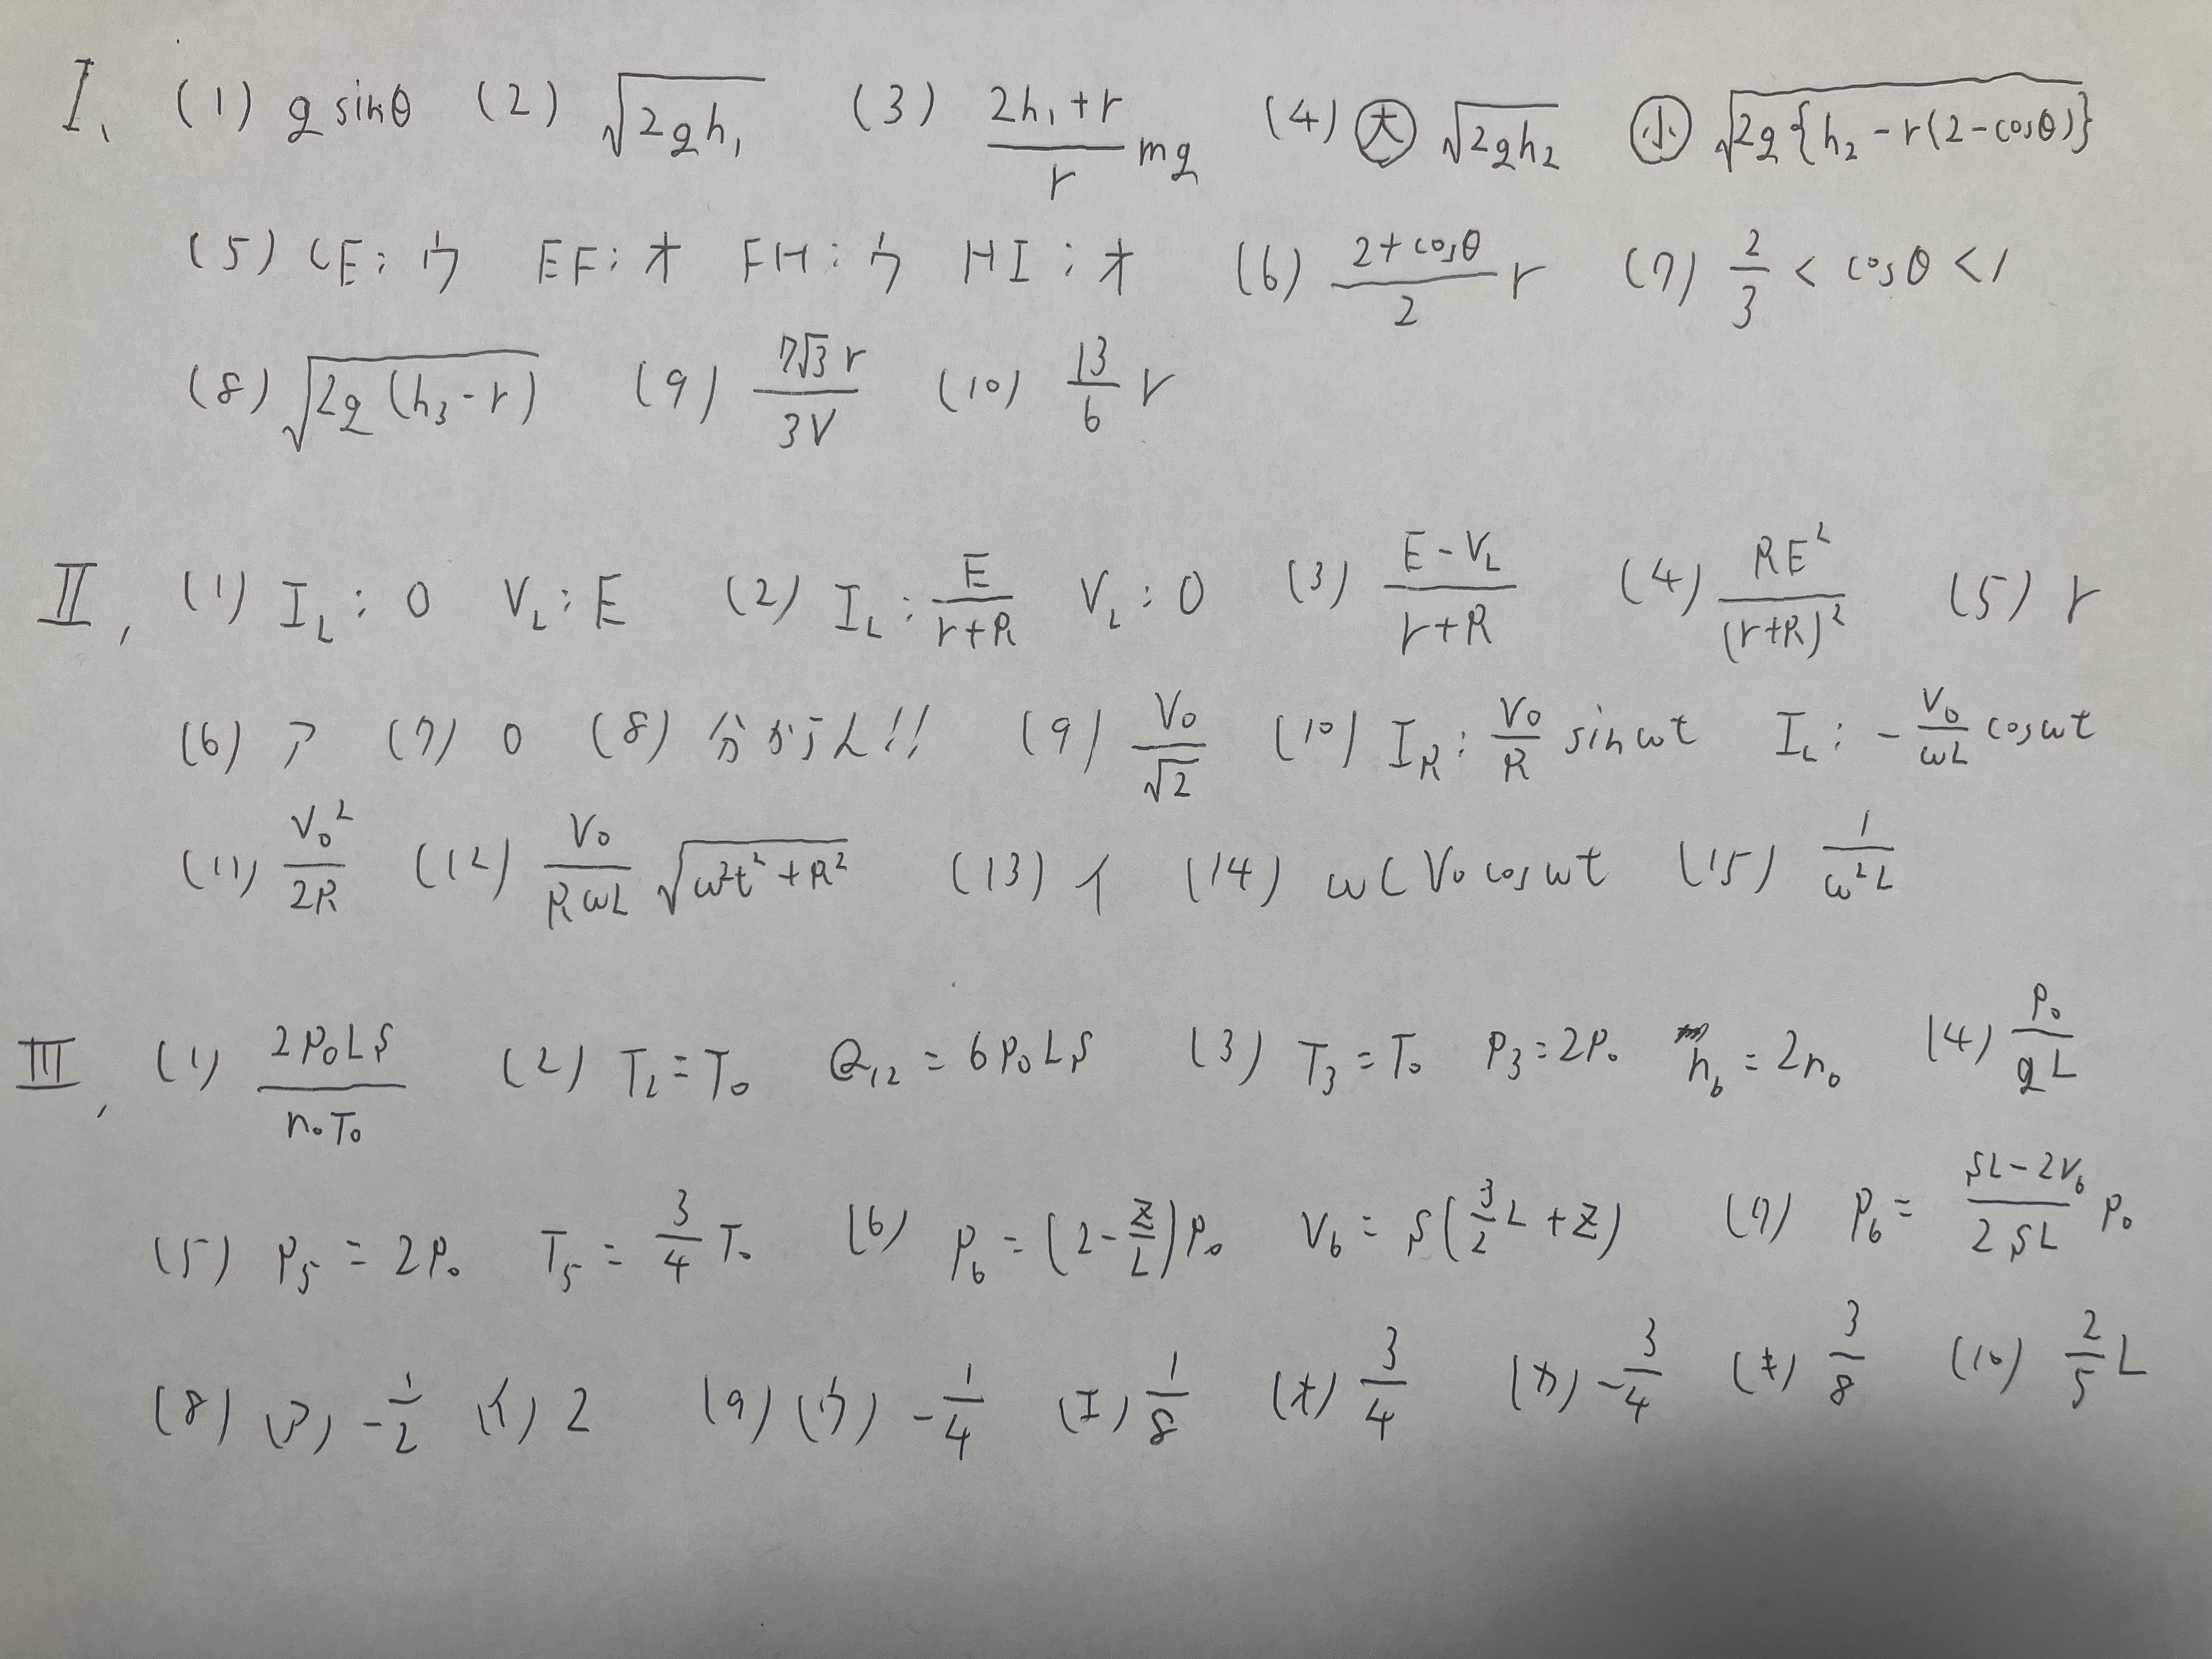 I, (1) g sinθ (2) √(2gh₁) (3) (2h₁+r)/r mg (4) ㊤大 √(2gh₂) ㊤小 √(2g{h₂-r(2-cosθ)})
(5) CE:ウ EF:オ FH:ウ HI:オ (6) (2+cosθ)/2 r (7) 2/3 < cosθ < 1
(8) √(2g(h₃-r)) (9) 7√3 r/3V (10) 13/6 r
II, (1) I_L:0 V_L:E (2) I_L:E/(r+R) V_L:0 (3) (E-V_L)/(r+R) (4) RE²/(r+R)² (5) r
(6) ア (7) 0 (8) 分からん!! (9) V₀/√2 (10) I_R:V₀/R sinωt I_L:-V₀/ωL cosωt
(11) V₀²/2R (12) V₀/RωL √(ω²t²+R²) (13) イ (14) ωCV₀cosωt (15) 1/ω²L
III, (1) 2P₀LS/n₀T₀ (2) T₂=T₀ Q₁₂=6P₀LS (3) T₃=T₀ P₃=2P₀ n_b=2n₀ (4) P₀/gL
(5) P₅=2P₀ T₅=3/4 T₀ (6) P₆=(2-z/L)P₀ V₆=S(3/2 L+z) (7) P₆=(SL-2V₆)/2SL P₀
(8) (ア) -1/2 (イ) 2 (9) (ウ) -1/4 (エ) 1/8 (オ) 3/4 (カ) -3/4 (キ) 3/8 (10) 2/5 L